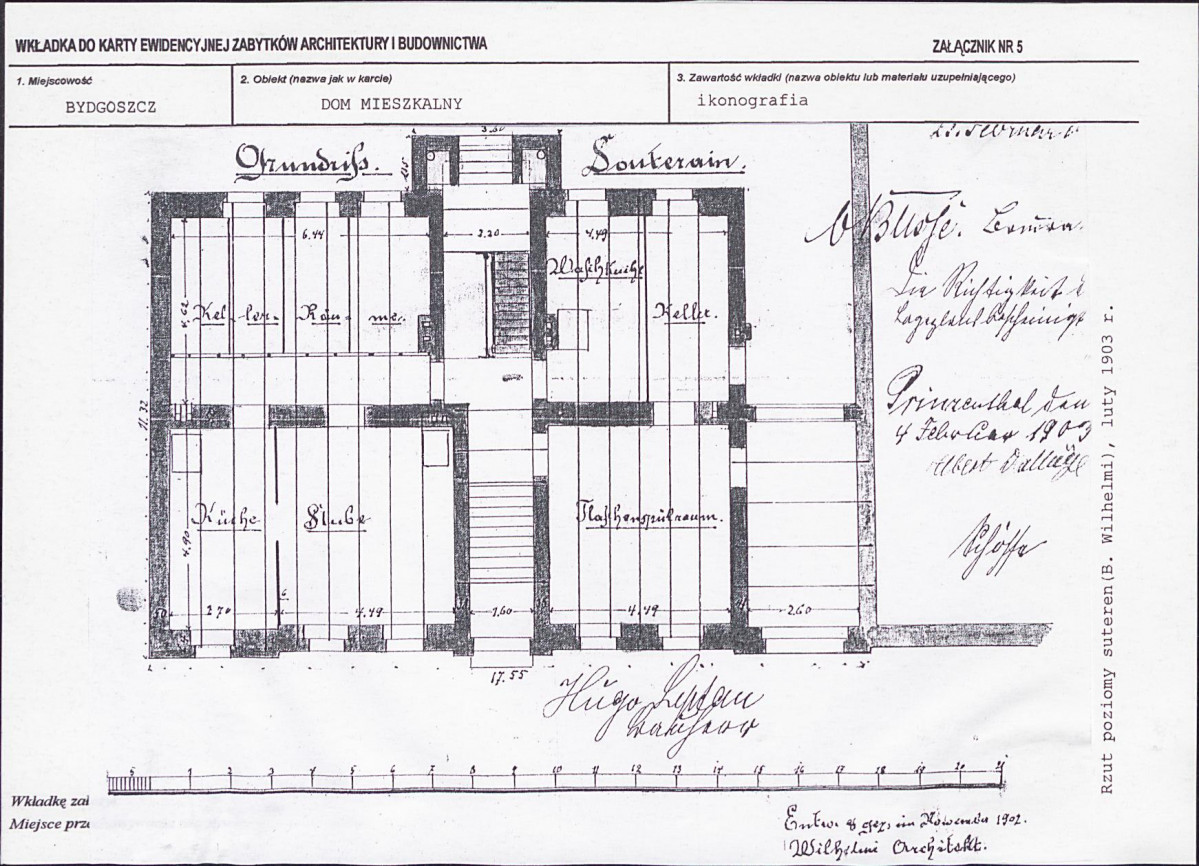 WKŁADKA DO KARTY EWIDENCYJNEJ ZABYTKÓW ARCHITEKTURY I BUDOWNICTWA
ZAŁĄCZNIK NR 5
1. Miejscowość
BYDGOSZCZ
2. Obiekt (nazwa jak w karcie)
DOM MIESZKALNY
3. Zawartość wkładki (nazwa obiektu lub materiału uzupełniającego)
ikonografia
Grundriß. Souterain.
3.60
6.44 2.20 4.49
Waschküche
Kel-ler-Räu-me. Keller.
4.62
11.32
Die Richtigkeit
Prinzenthal den
4 Februar 1903
Küche Stube Flaschenspülraum.
4.90
50 2.70 4.49 1.60 4.49 2.60
17.55
Hugo
Bauherr
5 1 2 3 4 5 6 7 8 9 10 11 12 13 14 15 16 17 18 19 20 21
Wkładkę zał
Miejsce prze
Entw. & gez. im November 1902.
Wilhelmi Architekt.
Rzut poziomy suteren(B. Wilhelmi), luty 1903 r.